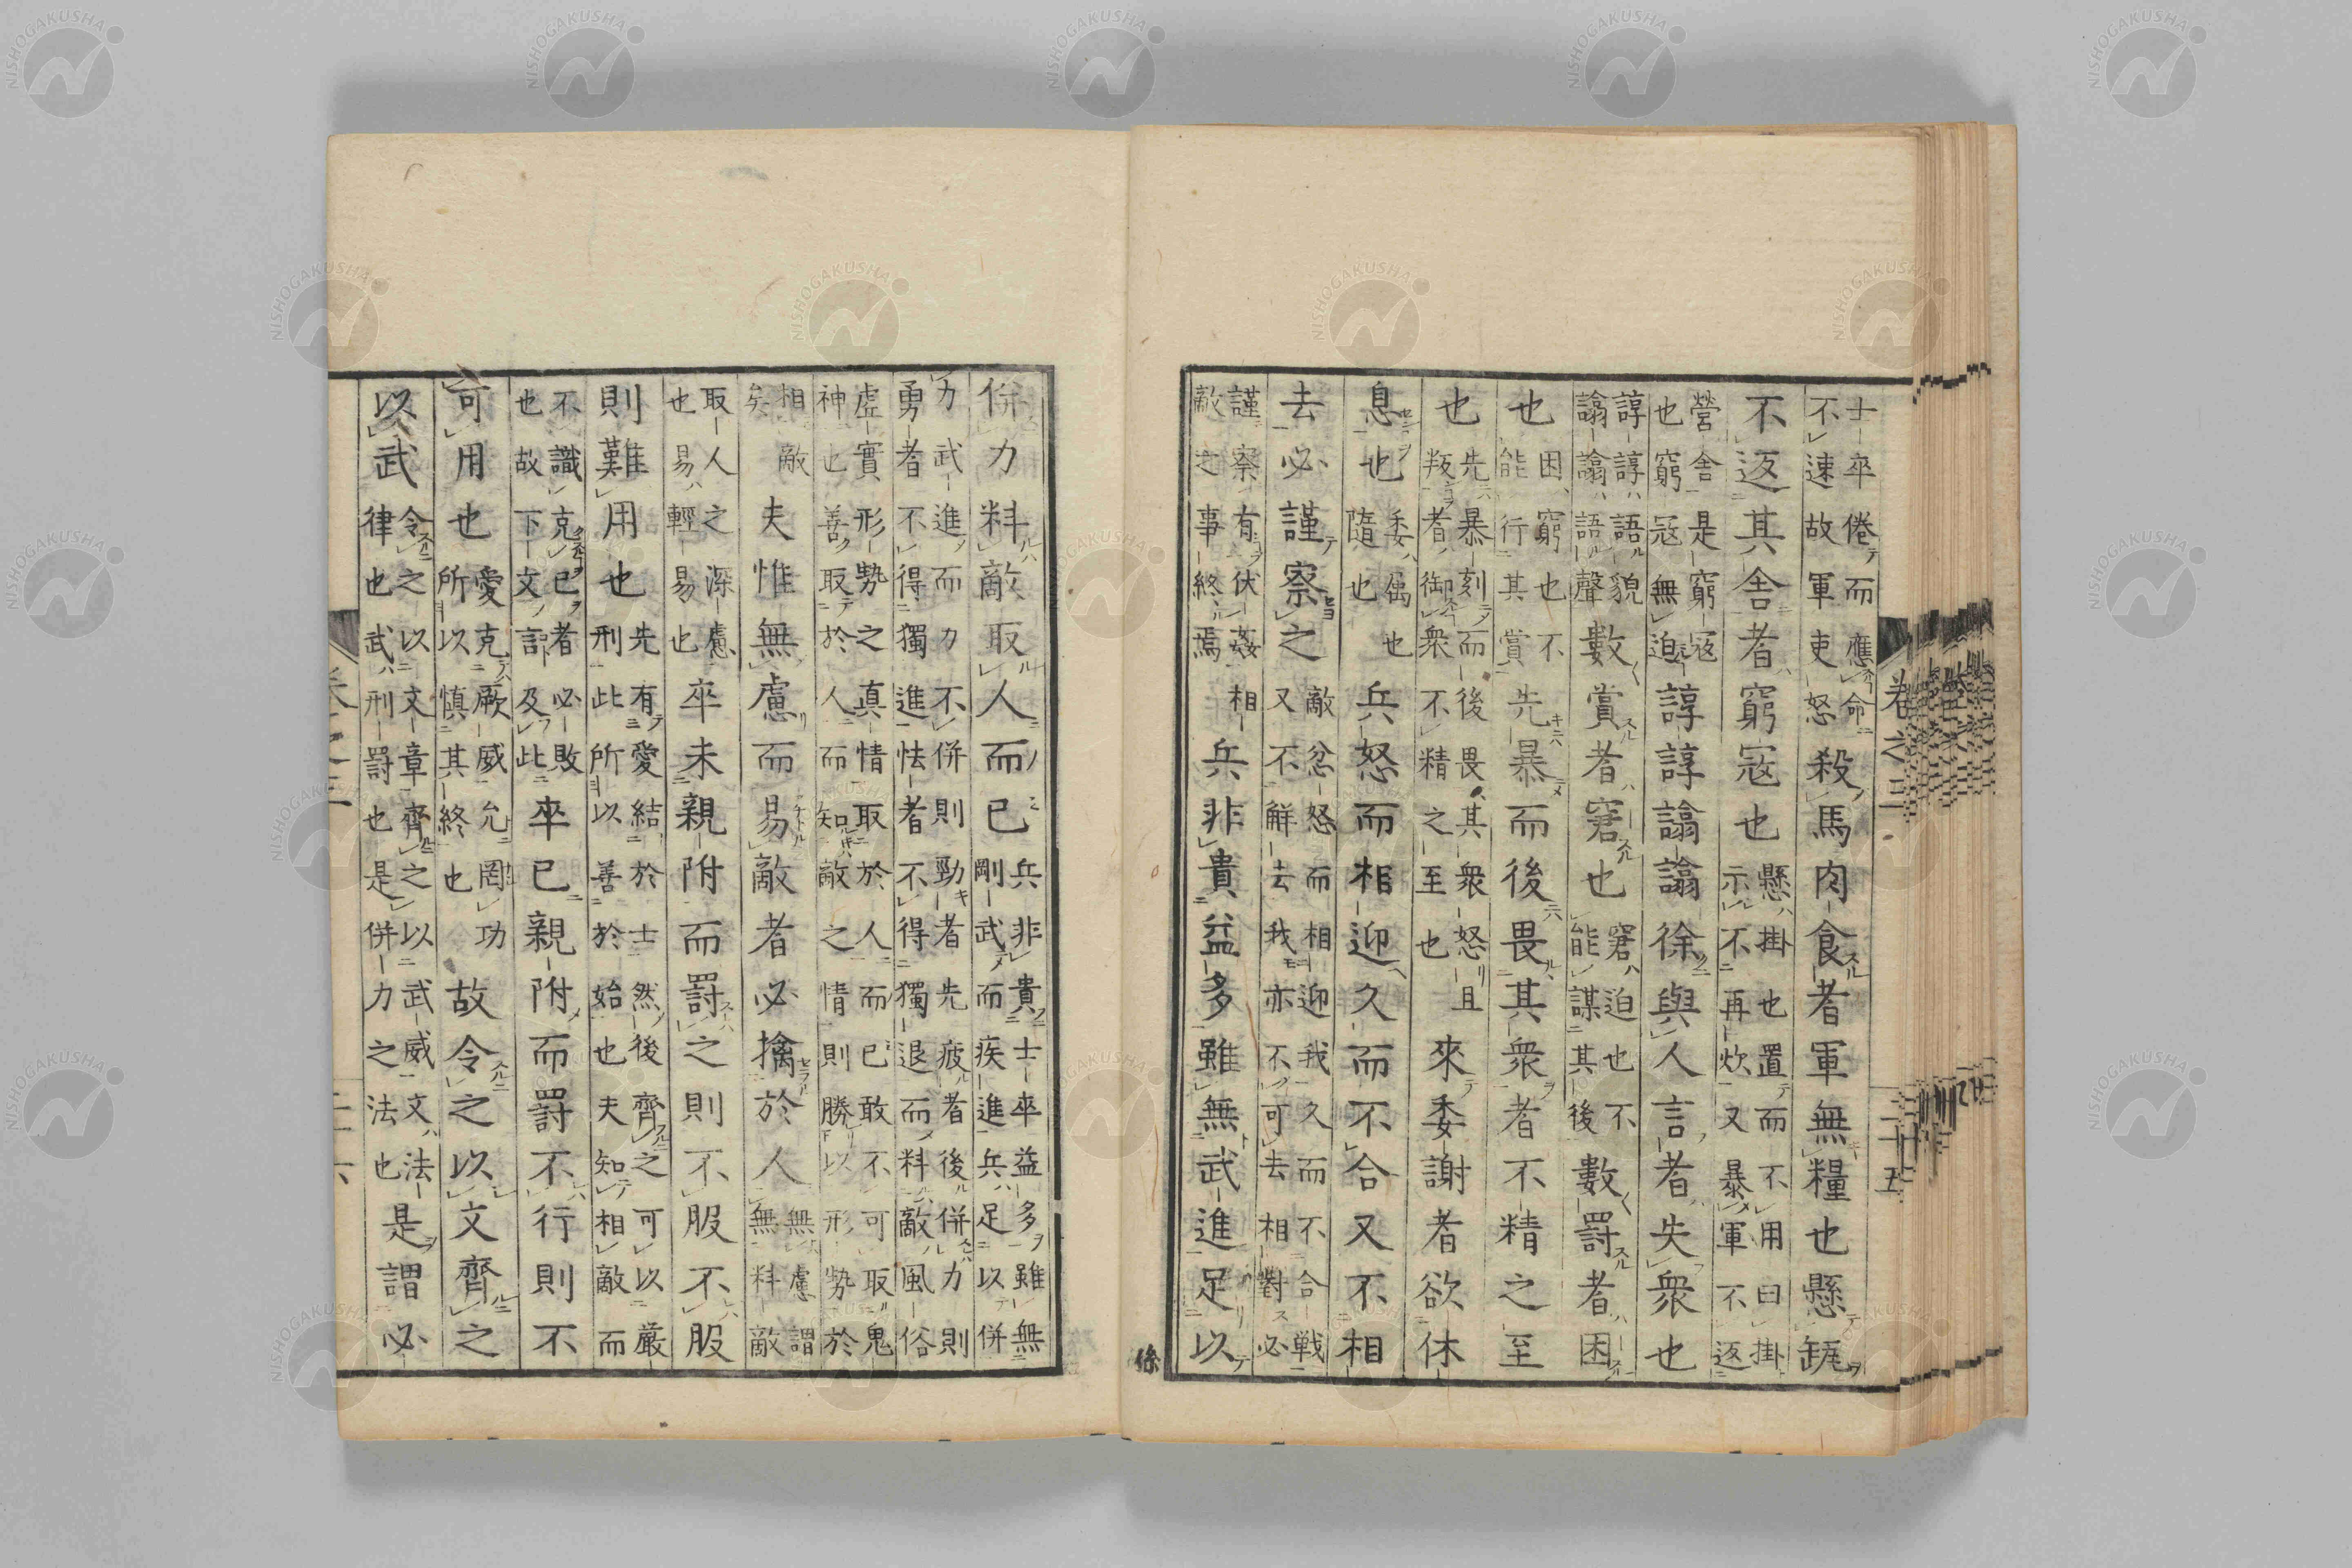 士卒倦而應命
不速故軍吏怒
殺馬肉食者軍無糧也懸缻
不返其舍者窮寇也
懸掛也置而不用曰掛
示不再炊又暴軍不返
營舍是窮寇
也窮寇無迫
諄諄𧬈𧬈徐與人言者失衆也
諄諄語貌
𧬈𧬈語聲
數賞者窘也
窘迫也不
能謀其後
數罰者困
也
困窮也不
能行其賞
先暴而後畏其衆者不精之至
也
先暴刻而後畏其衆怒且
叛者御衆不精之至也
來委謝者欲休
息也
委也
隨也
兵怒而相迎久而不合又不相
去必謹察之
敵忿怒而相迎我久而不合戦
又不解去我亦不可去相對必
謹察有伏姦相
敵之事終焉
兵非貴益多雖無武進足以
併力料敵取人而已
兵非貴士卒益多雖無
剛武而疾進兵足以併
力武進而力不併則勁者先疲者後併力則
勇者不得獨進怯者不得獨退而料敵風俗
虛實形勢之真情取於人而已敢不可取鬼
神也善取於人而知敵之情則勝以形勢於
相敵
矣
夫惟無慮而易敵者必擒於人
無慮謂
無料敵
取人之深慮
也易輕易也
卒未親附而罰之則不服不服
則難用也
先有愛結於士然後齊之可以嚴
刑此所以善於始也夫知相敵而
不識克已者必敗
也故下文言及此
卒已親附而罰不行則不
可用也
愛克厥威允罔功
所以慎其終也
故令之以文齊之
以武
令之以文章齊之以武威文法
律也武刑罰也是併力之法也
是謂必
卷之三
二十五
徐